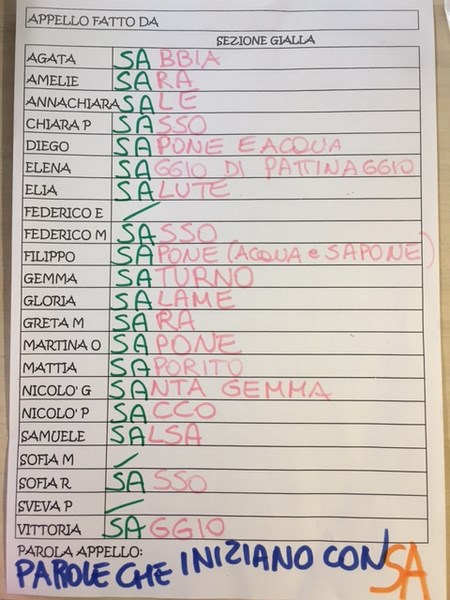 APPELLO FATTO DA
SEZIONE GIALLA
AGATA SABBIA
AMELIE SARA
ANNACHIARA SALE
CHIARA P SASSO
DIEGO SAPONE E ACQUA
ELENA SAGGIO DI PATTINAGGIO
ELIA SALUTE
FEDERICO E
FEDERICO M SASSO
FILIPPO SAPONE (ACQUA e SAPONE)
GEMMA SATURNO
GLORIA SALAME
GRETA M SARA
MARTINA O SAPONE
MATTIA SAPORITO
NICOLO' G SANTA GEMMA
NICOLO' P SACCO
SAMUELE SALSA
SOFIA M
SOFIA R SASSO
SVEVA P
VITTORIA SAGGIO
PAROLA APPELLO:
PAROLE CHE INIZIANO CON SA